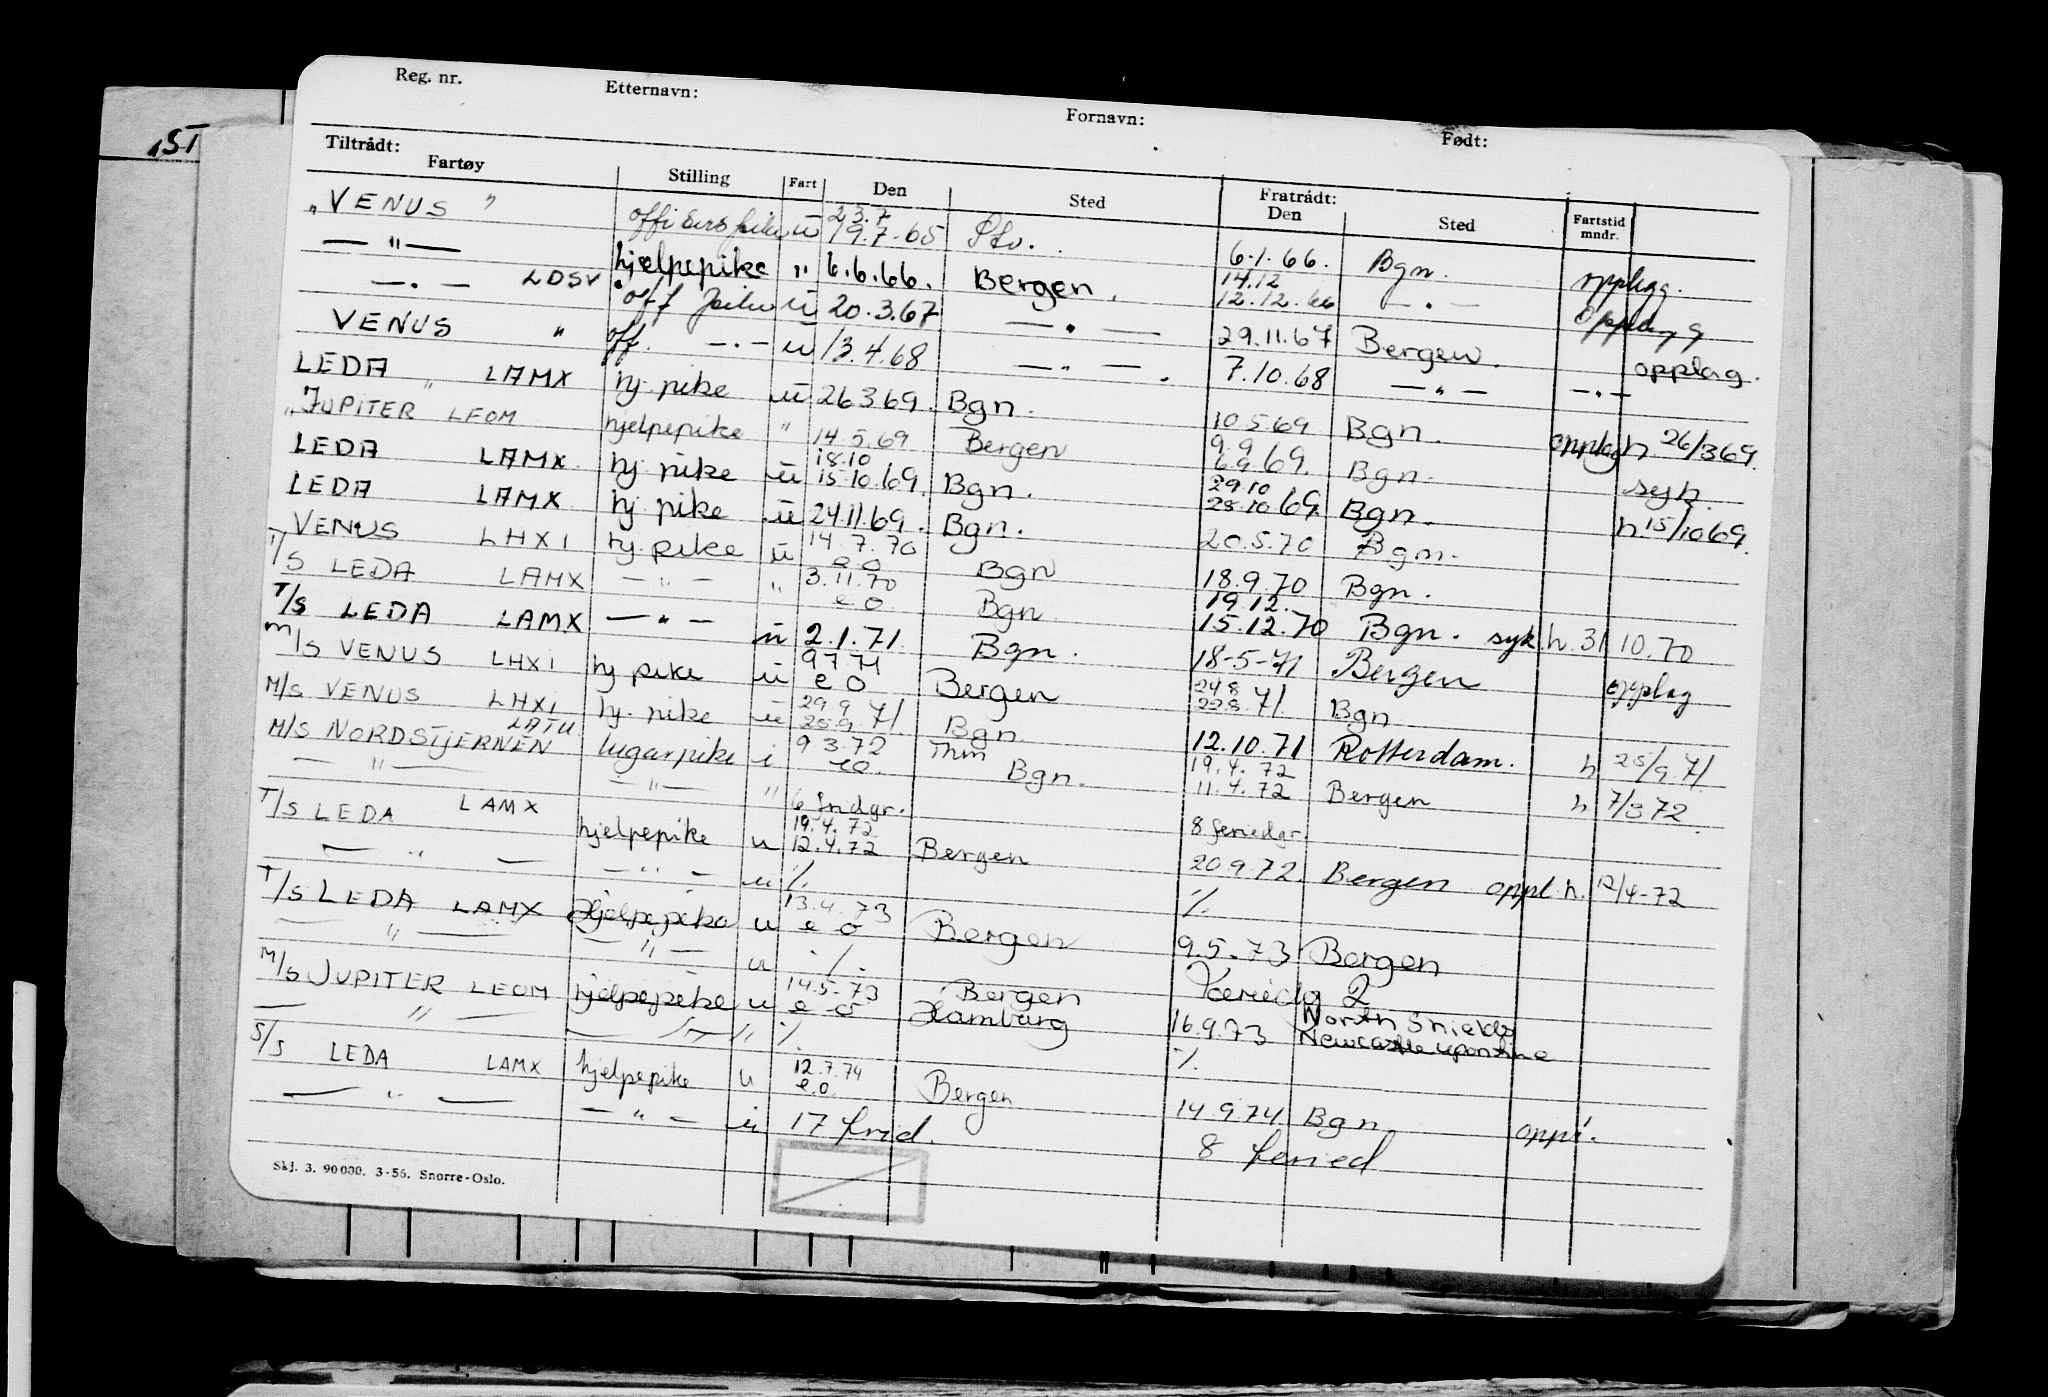 Reg. nr. Etternavn: Fornavn: Født:
Tiltrådt: Fratrådt:
Fartøy Stilling Fart Den Sted Den Sted Fartstid mndr.
"VENUS" offiserspike u 23.7 19.7.65 Stv. 6.1.66. Bgn. opplegg.
— " — hjelpepike " 6.6.66. Bergen. 14.12 12.12.66 — " — opplegg
— " — LDSV off pike u 20.3.67 — " — 29.11.67 Bergen. opplag.
VENUS " off. — " — u 13.4.68 — " — 7.10.68 — " — — " —
LEDA " LAMX hj. pike u 26369. Bgn. 10.5.69 Bgn. opplag h 26/369.
"JUPITER LEOM hjelpepike " 14.5.69 Bergen 9.9 6.9 69. Bgn. syk
LEDA LAMX hj. pike u 18.10 15.10.69. Bgn. 29.10 28.10 69. Bgn. h 15/1069.
LEDA LAMX hj pike u 24.11.69. Bgn. 20.5.70 Bgn.
VENUS LHXI hj. pike u 14.7.70 e o Bgn 18.9.70 Bgn.
T/S LEDA LAMX — " — " 3.11.70 e o Bgn 19.12. 15.12.70 Bgn. syk h. 31 10.70
T/S LEDA LAMX — " — u 2.1.71. Bgn. 18-5-71 Bergen opplag
M/S VENUS LHXI hj pike u 9.7.71 e o Bergen 248 228 71. Bgn
M/S VENUS LHXI hj. pike u 29.9 25.9 71. Bgn. 12.10.71 Rotterdam. h 25/9.71.
M/S NORDSTJERNEN LATU lugarpike i 9 3.72 e o. Thm Bgn. 19.4.72 11.4.72 Bergen h 7/372.
— " — — " — " 6 fridgr. 8 feriedgr.
T/S LEDA LAMX hjelpepike u 19.4.72 12.4.72 Bergen 20.9.72. Bergen oppl. h. 12/4-72
— " — — " — u ·/. ·/.
T/S LEDA LAMX Hjelpepike u 13.4.73 e o Bergen 9.5.73 Bergen
— " — — " — u ·/. Feriedg 2
M/S JUPITER LEOM hjelpepike u 14.5.73 e o Bergen Hamburg 16.9.73 North Shields Newcastle upon tyne
— " — — " — " ·/. ·/.
S/S LEDA LAMX hjelpepike u 12.7.74 e.o. Bergen 14.9.74 Bgn oppl.
— " — — " — u 17 frid. 8 feried
Skj. 3. 90000. 3-56. Snorre-Oslo.